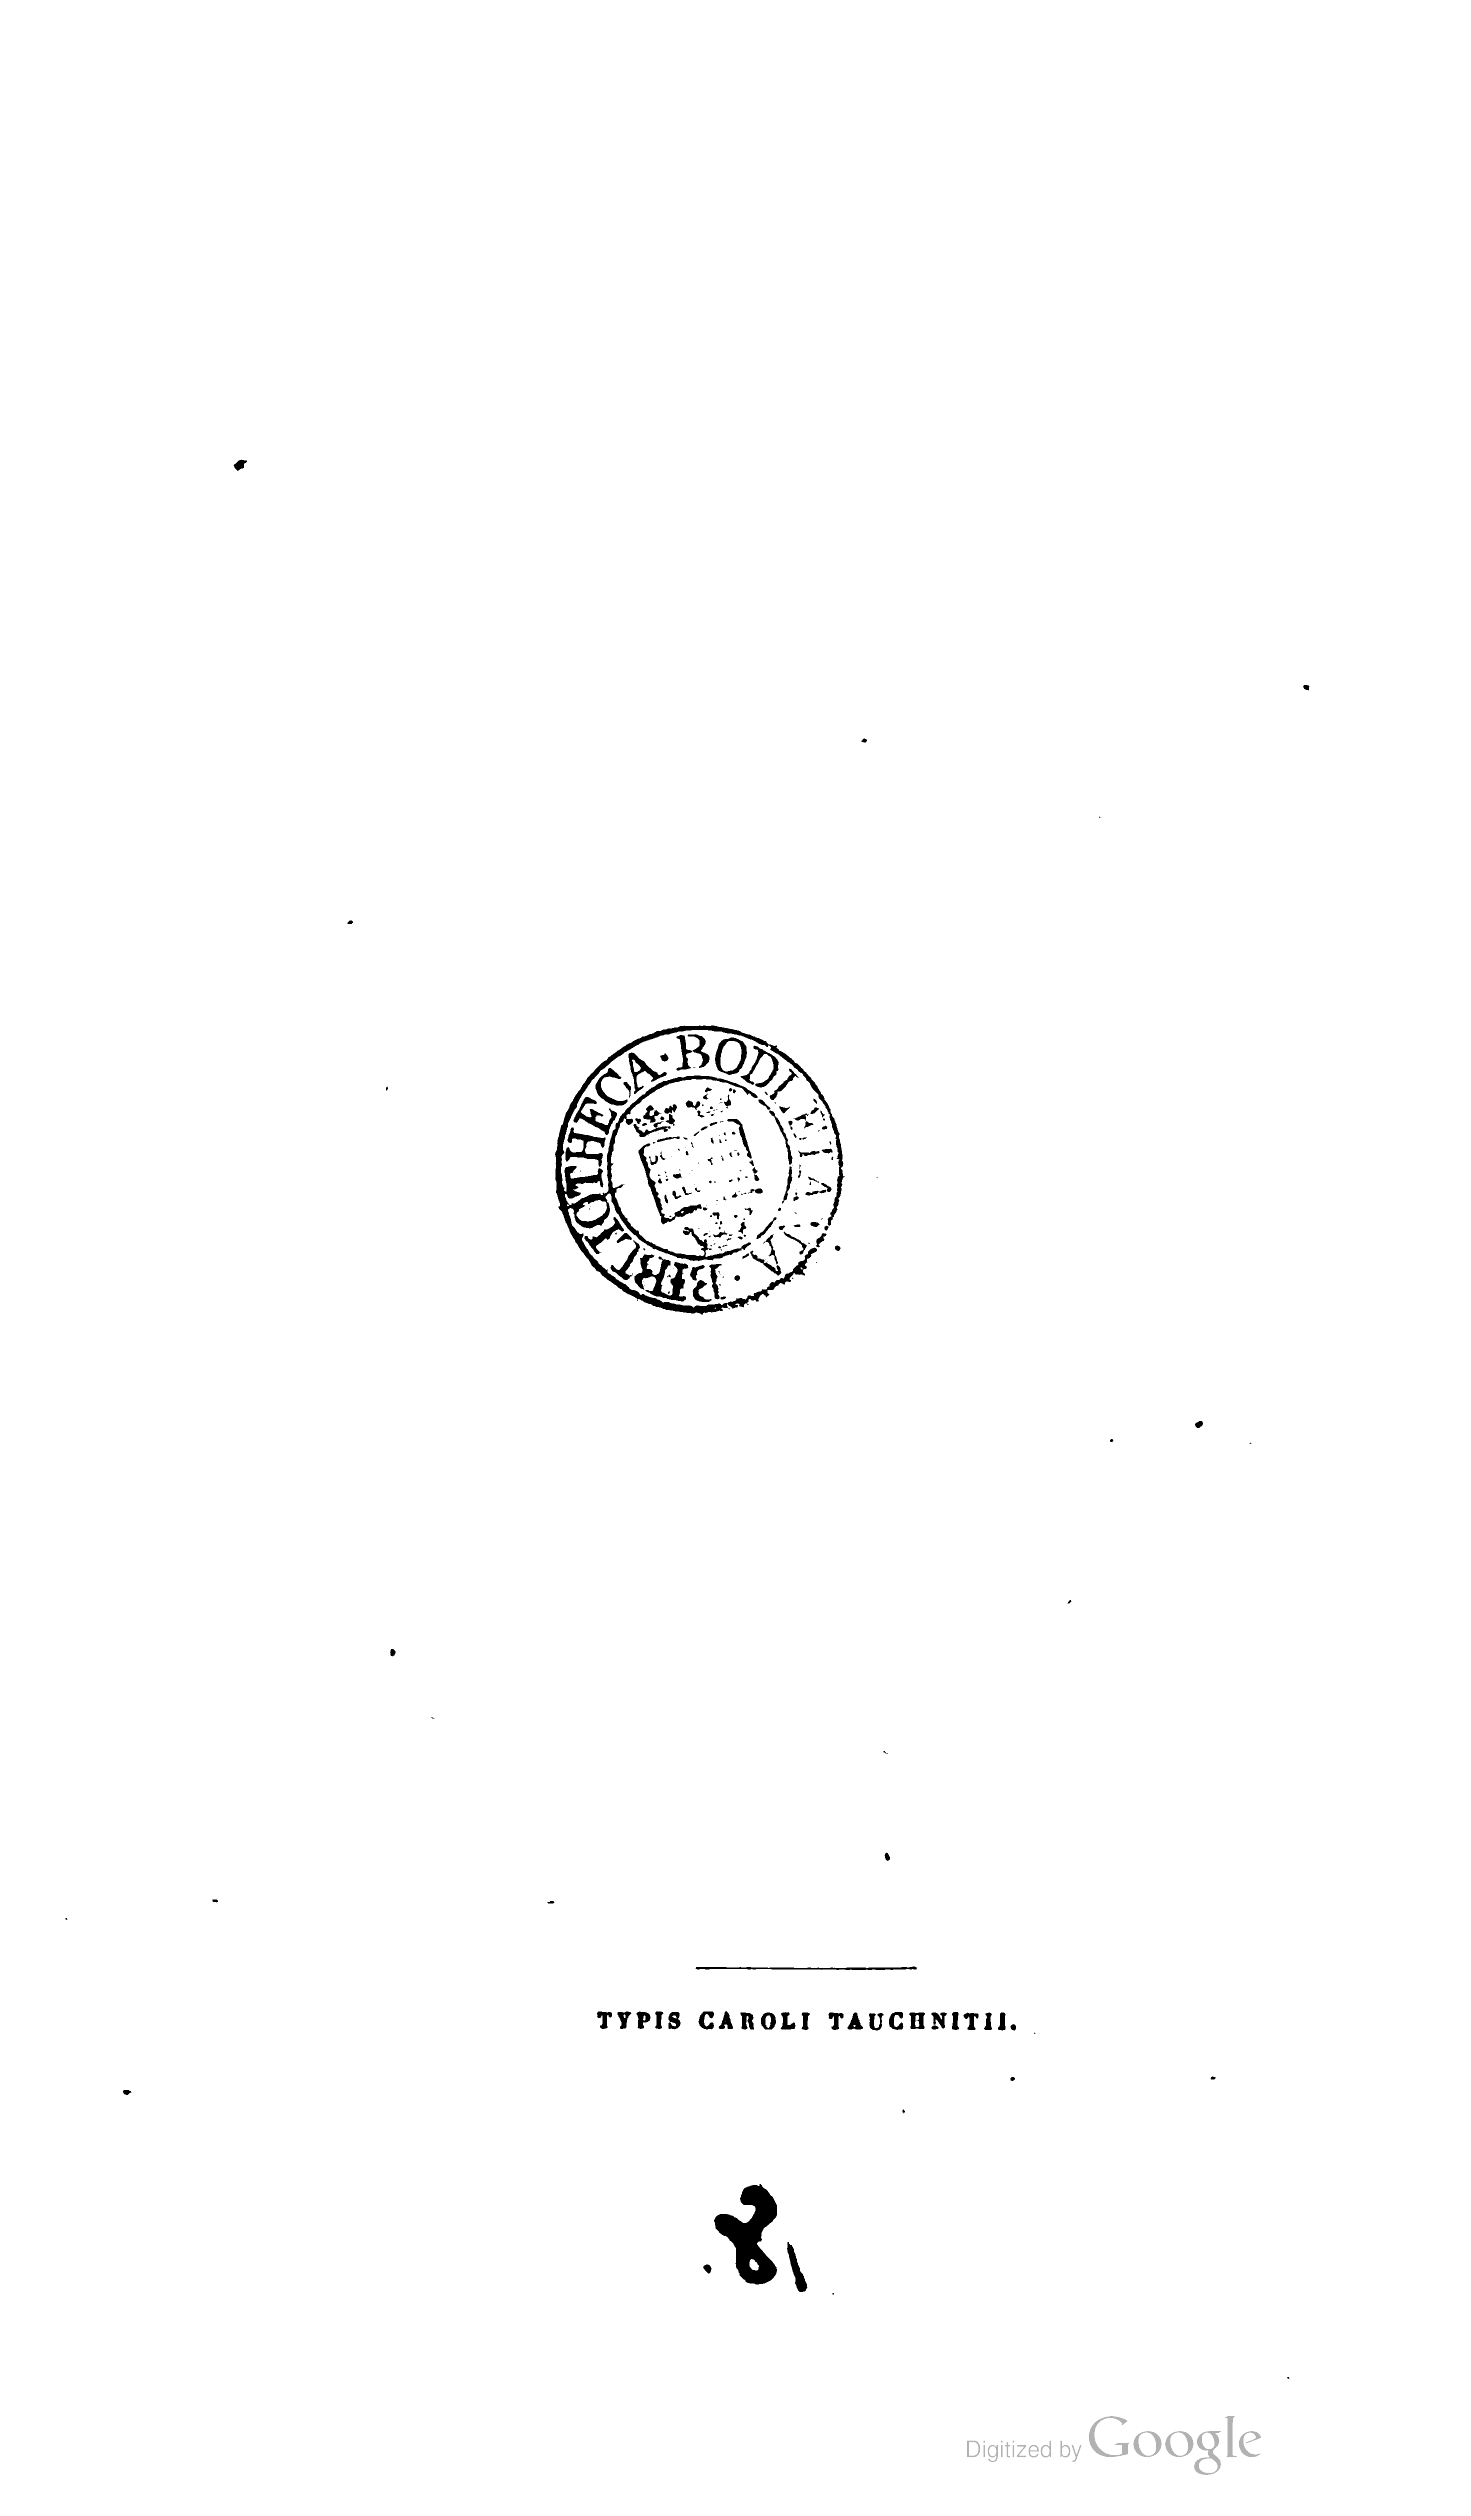 BIBLIOTHECA · BODLEIANA ·
TYPIS CAROLI TAUCHNITII.
81
Digitized by Google